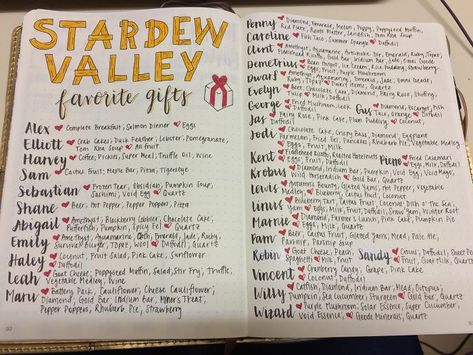 STARDEW
VALLEY
favorite gifts
Alex ♥ Complete Breakfast, Salmon Dinner ♥ Eggs
Elliott ♥ Crab Cakes, Duck Feather, Lobster, Pomegranate,
Tom Kha Soup ♥ All fruit
Harvey ♥ Coffee, Pickles, Super Meal, Truffle Oil, Wine
Sam ♥ Cactus Fruit, Maple Bar, Pizza, Tigerseye
Sebastian ♥ Frozen Tear, Obsidian, Pumpkin Soup,
Sashimi, Void Egg ♥ Quartz
Shane ♥ Beer, Hot Pepper, Pepper Poppers, Pizza
Abigail ♥ Amethyst, Blackberry Cobbler, Chocolate Cake,
Pufferfish, Pumpkin, Spicy Eel ♥ Quartz
Emily ♥ Amethyst, Aquamarine, Cloth, Emerald, Jade, Ruby,
Survival Burger, Topaz, Wool ♥ Daffodil, Quartz
Haley ♥ Coconut, Fruit Salad, Pink Cake, Sunflower
♥ Daffodil
Leah ♥ Goat Cheese, Poppyseed Muffin, Salad, Stir Fry, Truffle,
Vegetable Medley, Wine
Maru ♥ Battery Pack, Cauliflower, Cheese Cauliflower,
Diamond, Gold Bar, Iridium Bar, Miner's Treat,
Pepper Poppers, Rhubarb Pie, Strawberry
Penny ♥ Diamond, Emerald, Melon, Poppy, Poppyseed Muffin,
Red Plate, Roots Platter, Sandfish, Tom Kha Soup
Caroline ♥ Fish Taco, Summer Spangle ♥ Daffodil
Clint ♥ Amethyst, Aquamarine, Artichoke Dip, Emerald, Ruby, Topaz,
Gold Bar, Iridium Bar, Jade, Omni Geode
Demetrius ♥ Bean Hotpot, Ice Cream, Rice Pudding, Strawberry,
♥ Eggs, Fruit, Purple Mushroom
Dwarf ♥ Amethyst, Aquamarine, Emerald, Jade, Omni Geode,
Ruby, Topaz ♥ Dwarf Items, Quartz
Evelyn ♥ Beet, Chocolate Cake, Diamond, Fairy Rose, Stuffing,
Tulip ♥ Milk, Daffodil
George ♥ Fried Mushroom, Leek
♥ Daffodil
Gus ♥ Diamond, Escargot, Fish
Taco, Orange ♥ Daffodil
Jas ♥ Fairy Rose, Pink Cake, Plum Pudding ♥ Coconut,
Daffodil
Jodi ♥ Chocolate Cake, Crispy Bass, Diamond, Eggplant
Parmesan, Fried Eel, Pancakes, Rhubarb Pie, Vegetable Medley
♥ Eggs, Fruit, Milk
Kent ♥ Fiddlehead Risotto, Roasted Hazelnuts
♥ Eggs, Fruit, Daffodil
Pierre ♥ Fried Calamari
♥ Eggs, Milk, Daffodil
Krobus ♥ Diamond, Iridium Bar, Pumpkin, Void Egg, Void Mayo,
Wild Horseradish ♥ Gold Bar, Quartz
Lewis ♥ Autumn's Bounty, Glazed Yams, Hot Pepper, Vegetable
Medley ♥ Blueberry, Cactus Fruit, Coconut
Linus ♥ Blueberry Tart, Cactus Fruit, Coconut, Dish o' the Sea,
Yam ♥ Eggs, Milk, Fruit, Daffodil
Marnie ♥ Diamond, Farmer's Lunch, Pink Cake, Pumpkin Pie
♥ Eggs, Milk, Quartz
Pam ♥ Beer, Cactus Fruit, Glazed Yams, Mead, Pale Ale,
Parsnip, Parsnip Soup
Robin ♥ Goat Cheese, Peach,
Spaghetti ♥ Milk, Fruit
Sandy ♥ Crocus, Daffodil, Sweet Pea
Vincent ♥ Cranberry Candy, Grape, Pink Cake
♥ Coconut, Daffodil
Willy ♥ Catfish, Diamond, Iridium Bar, Mead, Octopus,
Pumpkin, Sea Cucumber, Sturgeon ♥ Gold Bar, Quartz
Wizard ♥ Purple Mushroom, Solar Essence, Super Cucumber,
Void Essence ♥ Geode Minerals, Quartz